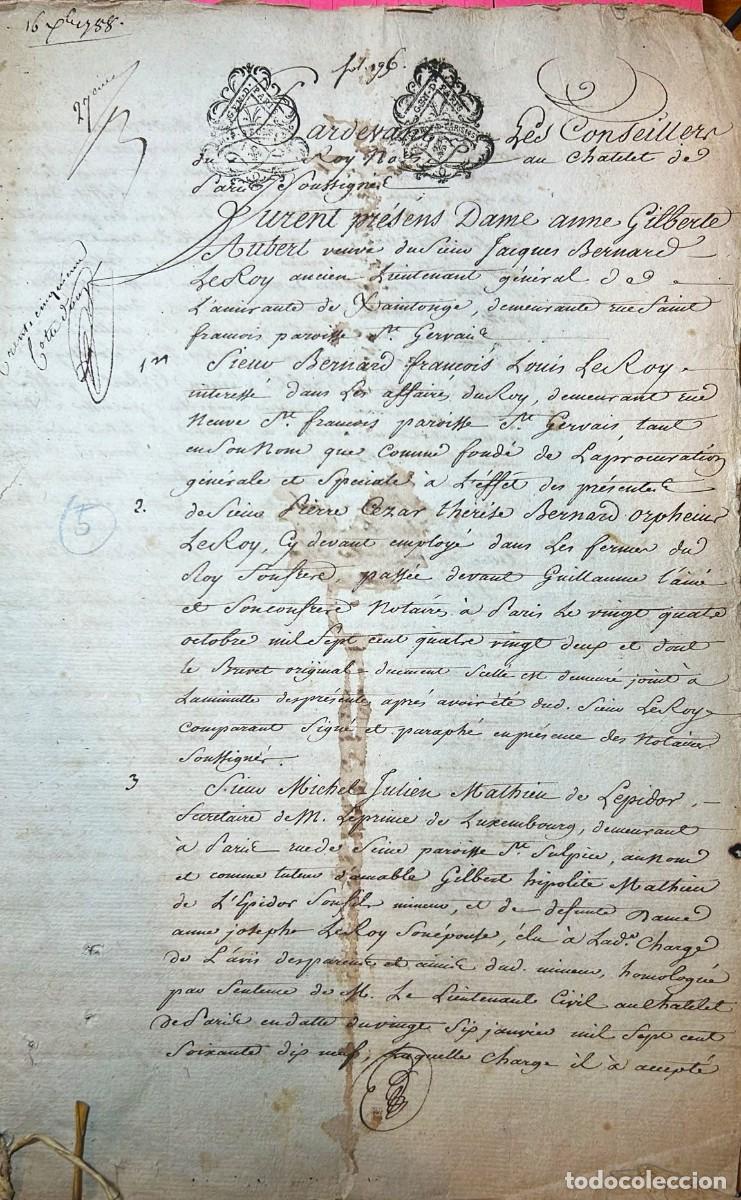 16 xbre 1788.
27eme
Pardevant Les Conseillers
du Roy No au Chatelet de
Paris Soussignés
Furent présens Dame anne Gilberte
Aubert veuve du Sieur Jacques Bernard
LeRoy ancien Lieutenant général de
L'amirauté de Xaintonge, demeurante rue Saint
francois paroisse St. Gervais
trente cinquieme
Cotte
1er
Sieur Bernard francois Louis LeRoy
interessé dans Les affaires du Roy, demeurant rue
Neuve St. francois paroisse St. Gervais tant
en Son Nom que Comme fondé de Laprocuration
générale et Speciale à L'effet des présentes
2.
de Sieur Pierre Cezar thérése Bernard orpheüs
LeRoy, Cy devant employé dans Les fermes du
5
Roy Sonfrere, passée devant Guillaume l'ainé
et Sonconfrere Notaires à Paris Le vingt quatre
octobre mil Sept cent quatre vingt deux et dont
le Brevet original duement Scellé est demeuré joint à
Laminutte desprésentes après avoir été dud. Sieur LeRoy
Comparant Signé et paraphé enpresence des Notaires
Soussignés.
3
Sieur Michel Julien Mathieu de Lepidor,
Secretaire de M. Leprince de Luxembourg, demeurant
à Paris rue de Seine paroisse St. Sulpice, aunom
et comme tuteur d'amable Gilbert hipolite Mathieu
de L'Epidor Sonfils mineur, et de defunte Dame
anne josephe LeRoy Sonépouse, élu à Lade. Charge
de L'avis desparens et amis dud. mineur, homologué
par Sentence de M. Le Lieutenant Civil au Chatelet
de Paris en datte du vingt Six janvier mil Sept cent
Soixante dix neuf, Laquelle Charge il à accepté
todocoleccion